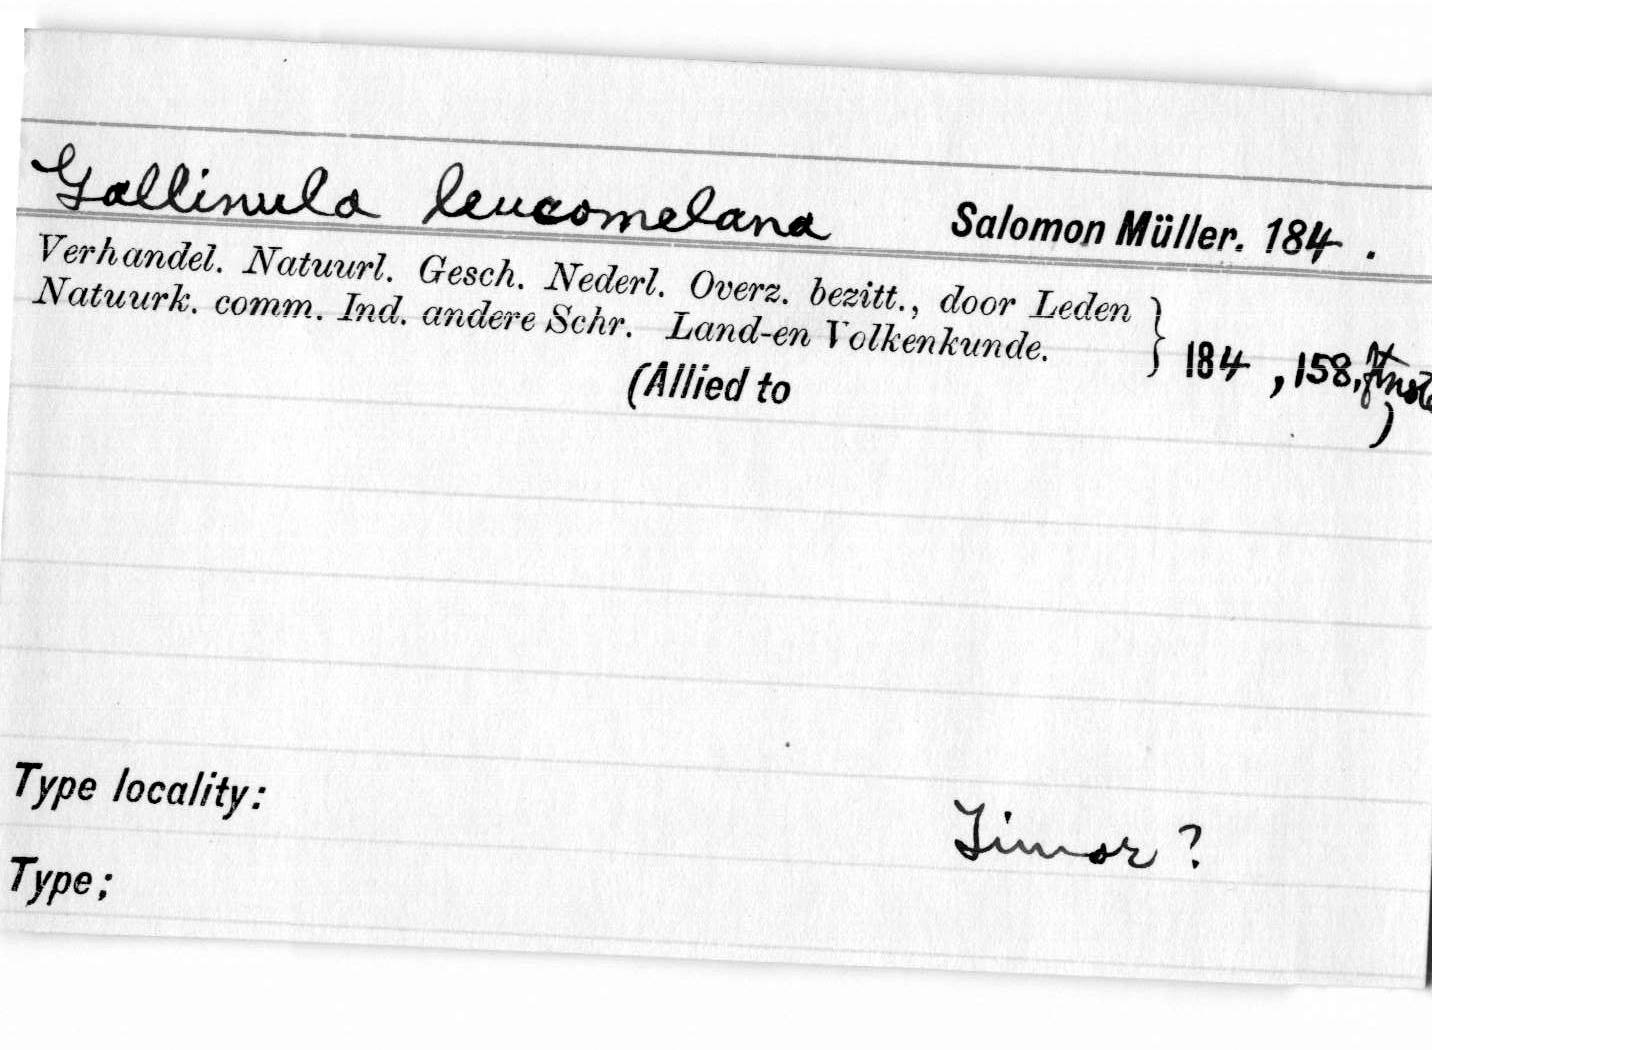 Gallinula leucomelana Salomon Müller. 184 .
Verhandel. Natuurl. Gesch. Nederl. Overz. bezitt., door Leden
Natuurk. comm. Ind. andere Schr. Land-en Volkenkunde. } 184 , 158,
(Allied to )
Type locality: Timor ?
Type;